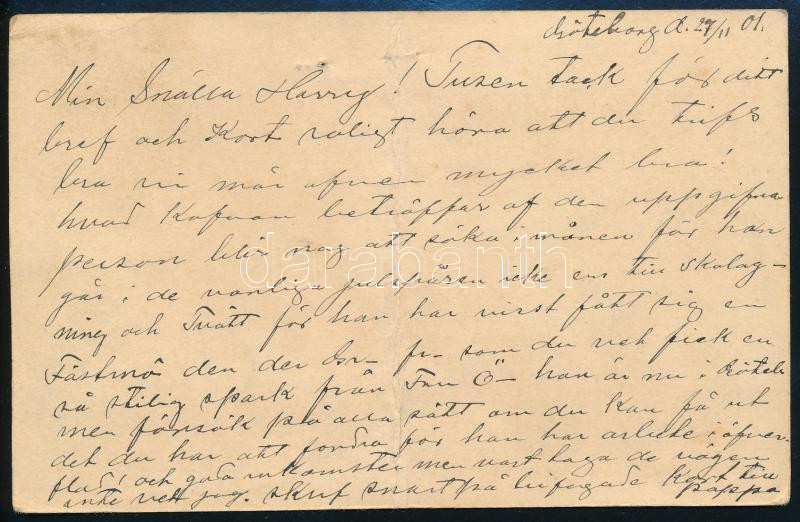 Göteborg d. 29/11 01.
Min Snälla Harry! Tusen tack för ditt
bref och Kort roligt höra att du trifs
bra vi mår äfven mycket bra!
hvad Kafvan beträffar af den uppgifna
person blir nog att söka i månen för han
går i de vanliga julspåren icke ens till Skolag-
ning och Tvätt för han har visst fått sig en
Fästmö den der fr- som du vet fick en
så stilig spark från Fru Ö- han är nu i Göteb
men försök på alla sätt om du kan få ut
det du har att fordra för han har arbete i öfver-
flöd! och goda inkomster men vart taga de vägen
inte vet jag. skrif snart på bifogade Kort till
pappa
darabanth